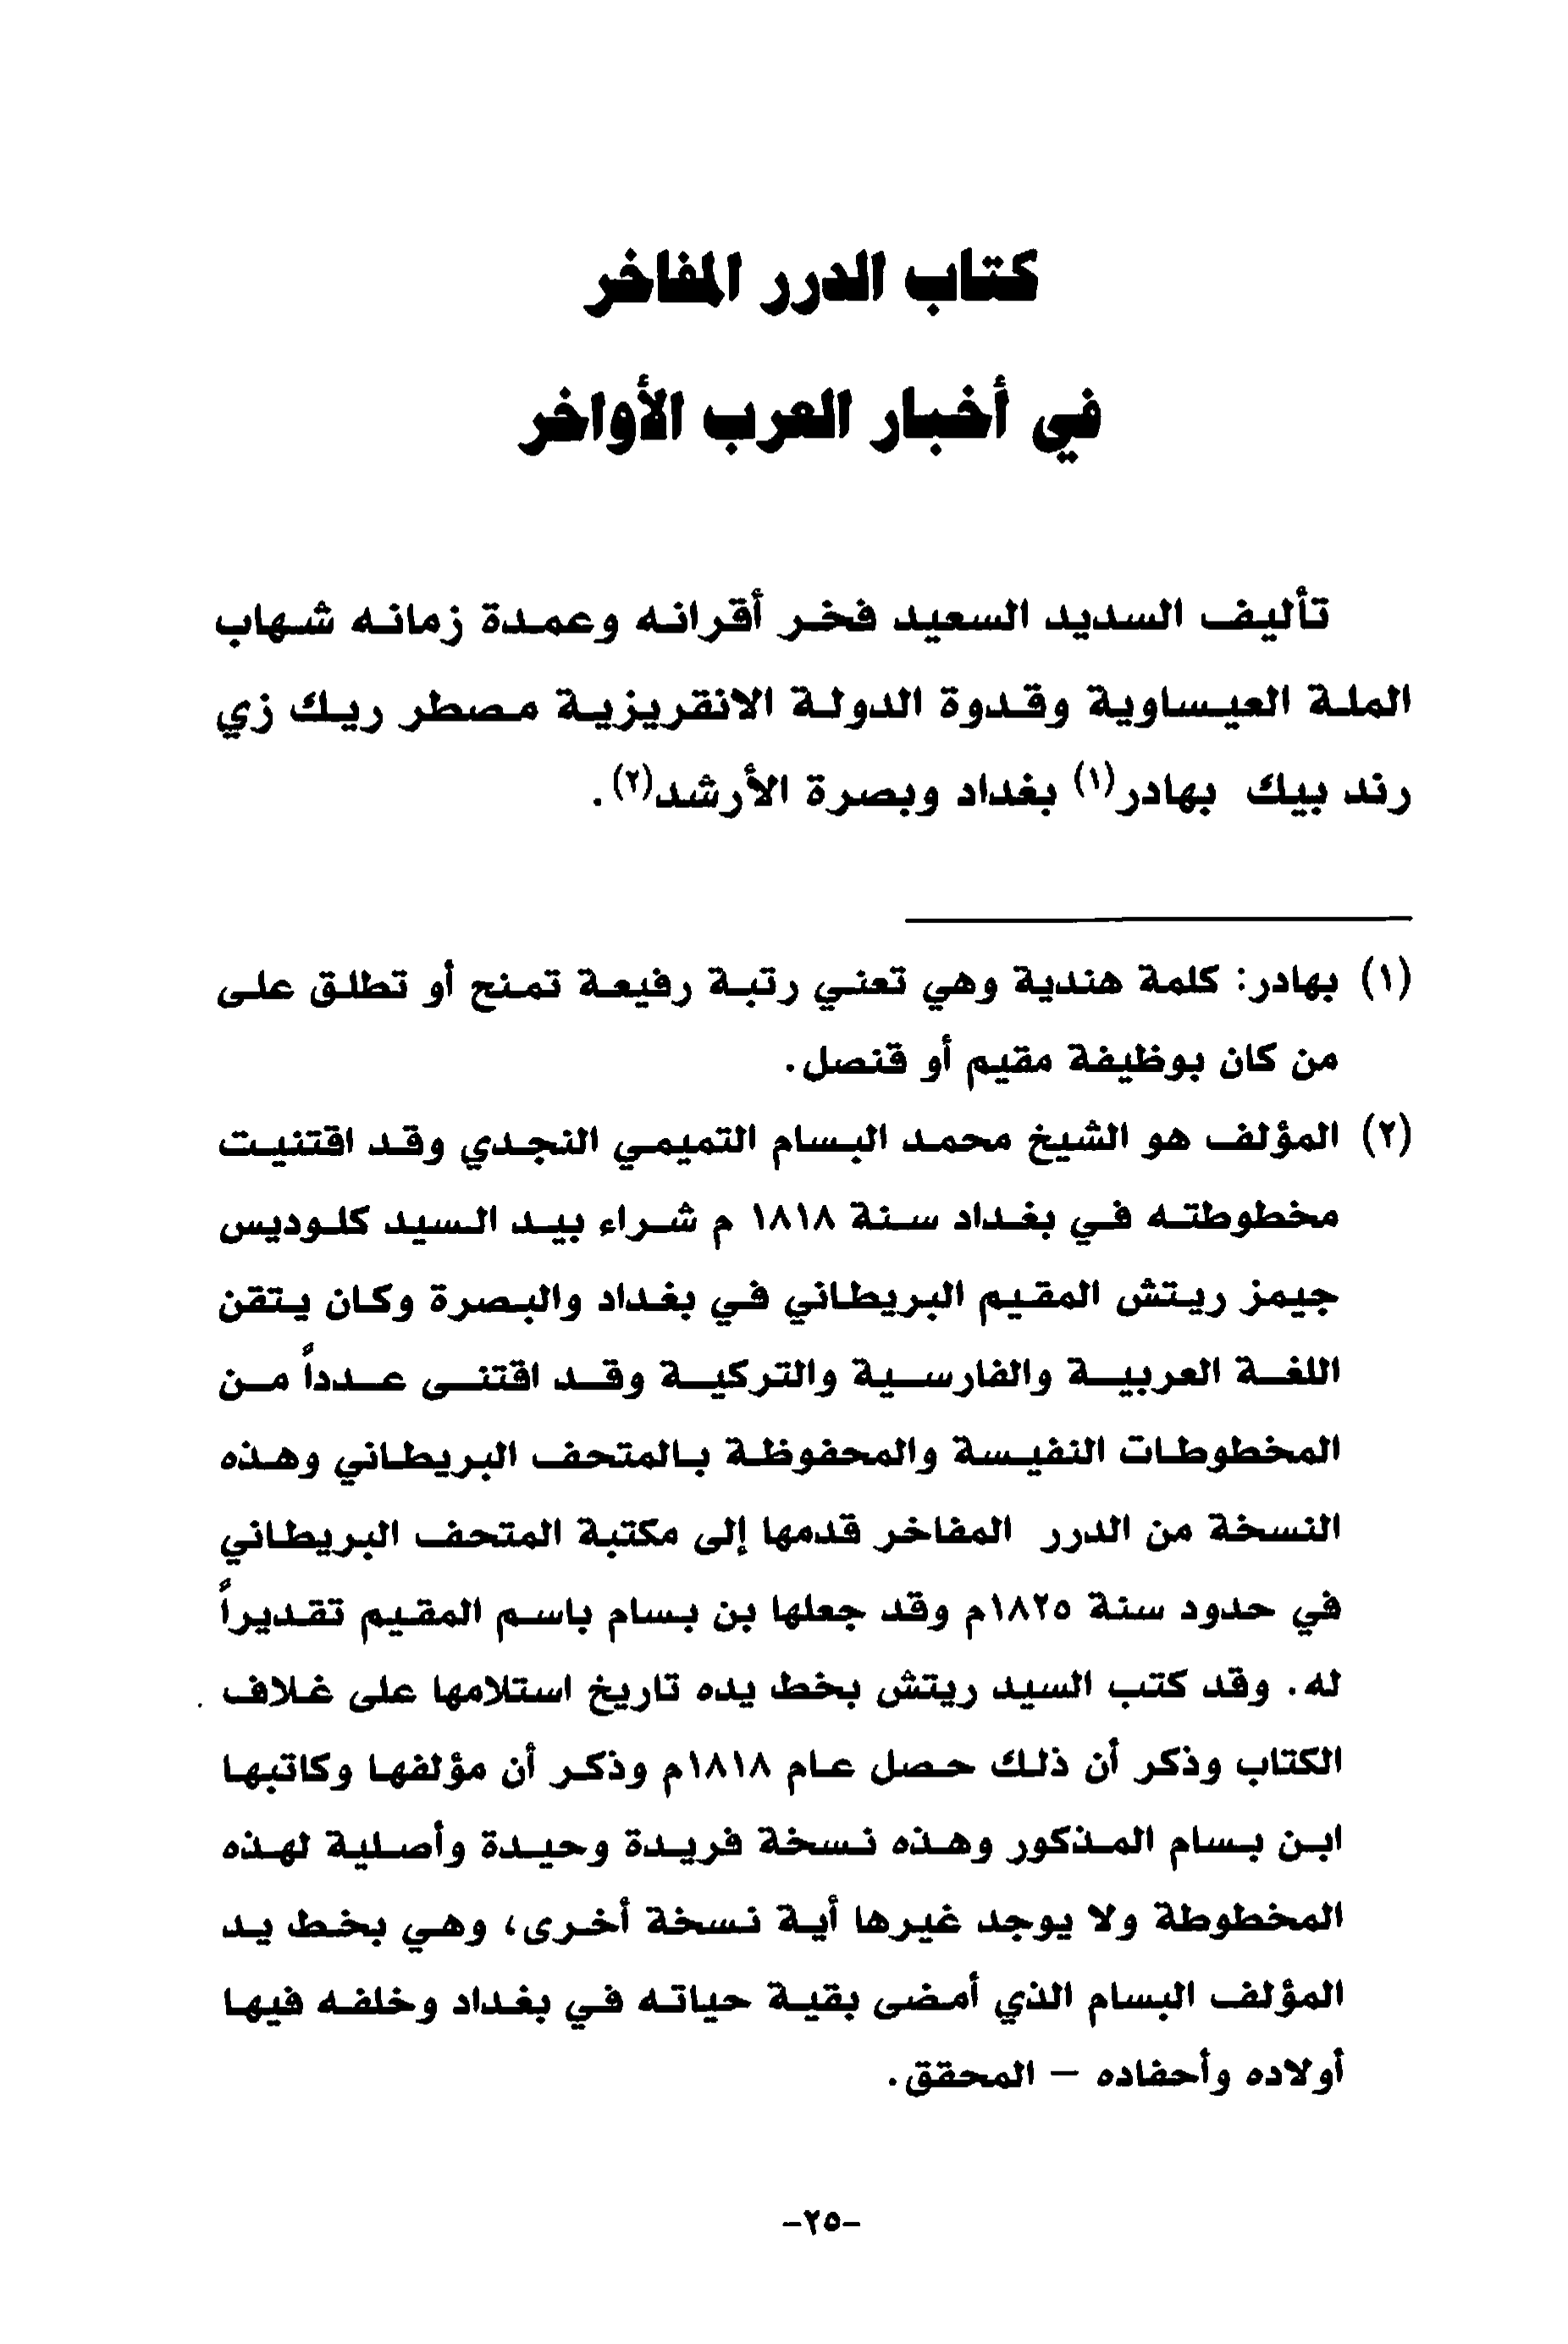 كتاب الدرر المفاخر
في أخبار العرب الأواخر
تأليف السديد السعيد فخر أقرانه وعمدة زمانه شهاب
الملة العيساوية وقدوة الدولة الانقريزية مصطر ريك زي
رند بيك بهادر(١) بغداد وبصرة الأرشد(٢).
(١) بهادر: كلمة هندية وهي تعني رتبة رفيعة تمنح أو تطلق على
من كان بوظيفة مقيم أو قنصل.
(٢) المؤلف هو الشيخ محمد البسام التميمي النجدي وقد اقتنيت
مخطوطته في بغداد سنة ١٨١٨ م شراء بيد السيد كلوديس
جيمز ريتش المقيم البريطاني في بغداد والبصرة وكان يتقن
اللغة العربية والفارسية والتركية وقد اقتنى عدداً من
المخطوطات النفيسة والمحفوظة بالمتحف البريطاني وهذه
النسخة من الدرر المفاخر قدمها إلى مكتبة المتحف البريطاني
في حدود سنة ١٨٢٥م وقد جعلها بن بسام باسم المقيم تقديراً
له. وقد كتب السيد ريتش بخط يده تاريخ استلامها على غلاف
الكتاب وذكر أن ذلك حصل عام ١٨١٨م وذكر أن مؤلفها وكاتبها
ابن بسام المذكور وهذه نسخة فريدة وحيدة وأصلية لهذه
المخطوطة ولا يوجد غيرها أية نسخة أخرى، وهي بخط يد
المؤلف البسام الذي أمضى بقية حياته في بغداد وخلفه فيها
أولاده وأحفاده – المحقق.
-٢٥-